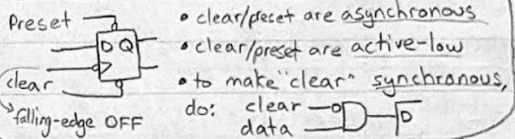 Preset
D Q
clear
falling-edge OFF
• clear/preset are asynchronous
• clear/preset are active-low
• to make "clear" synchronous,
do: clear
data
D